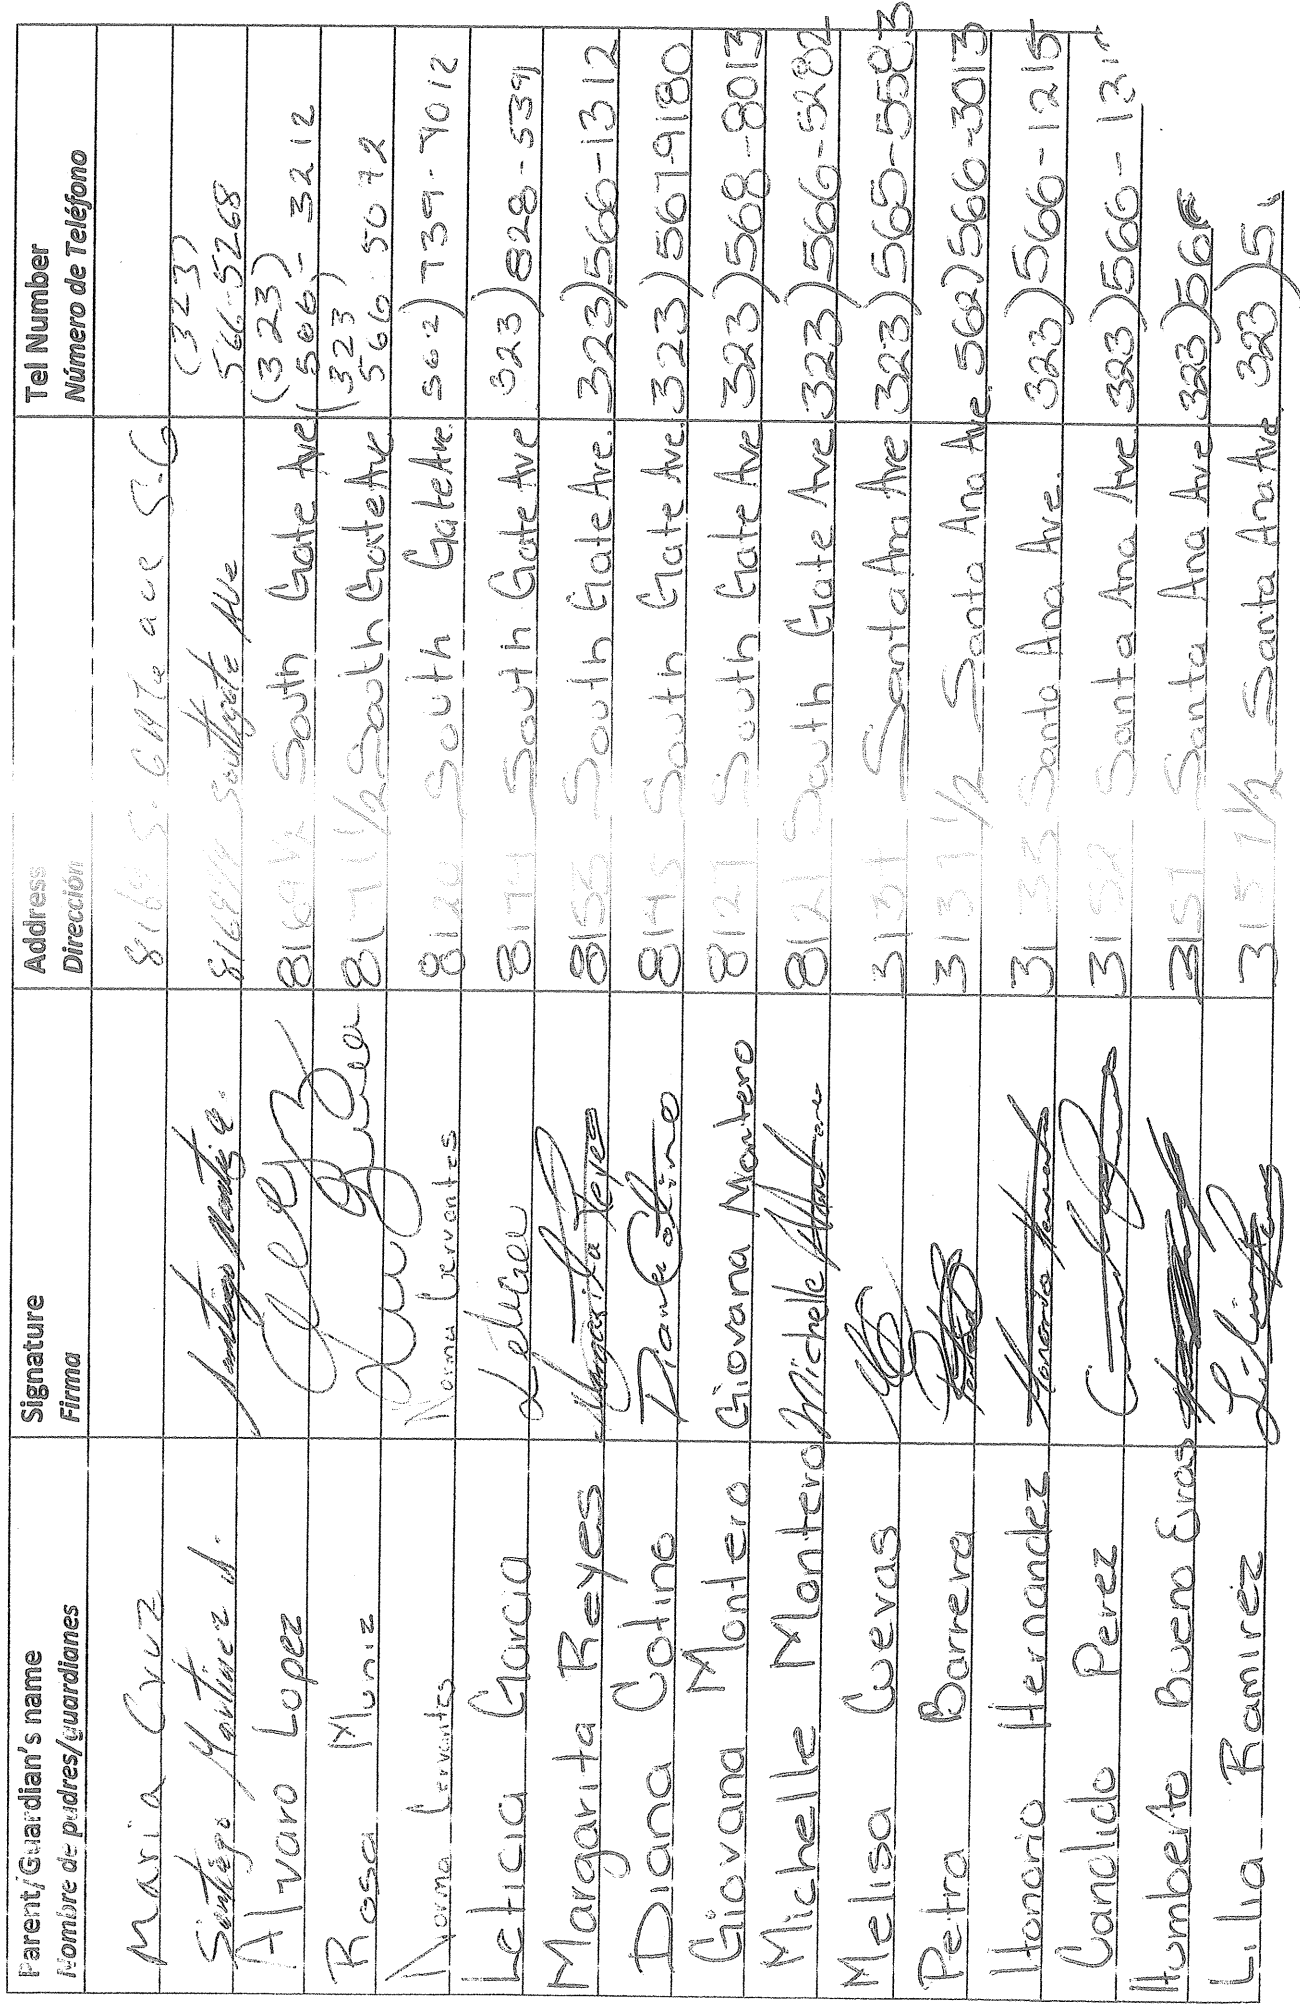 Parent/Guardian's name Signature Address Tel Number
Nombre de padres/guardianes Firma Dirección Número de Teléfono
Maria Cruz 8164 S. Gate ave S.G
(323)
Santiago Martinez Southgate Ave 566-5268
(323)
Alvaro Lopez South Gate Ave 566-3212
(323)
Rosa Muniz 8171 1/2 South Gate Ave 566-5072
Norma Cervantes Norma Cervantes South Gate Ave. 562) 739-7012
Leticia Garcia Leticia South Gate Ave 323) 828-5391
Margarita Reyes Margarita Reyes 8155 South Gate Ave. 323) 566-1312
Diana Cotino Diana Cotino 8145 South Gate Ave. 323) 567-9180
Giovana Montero Giovana Montero 8127 South Gate Ave 323) 568-8013
Michelle Montero Michelle 8121 South Gate Ave. 323) 566-5282
Melisa Cuevas 3137 Santa Ana Ave 323) 565-5583
Petra Barrera 3137 1/2 Santa Ana Ave. 562) 566-3013
Honorio Hernandez 3133 Santa Ana Ave. 323) 566-1215
Candido Perez 3152 Santa Ana Ave 323) 566-
Humberto Bueno Eras 3157 Santa Ana Ave 323) 56
Lilia Ramirez 3157 1/2 Santa Ana Ave. 323) 5